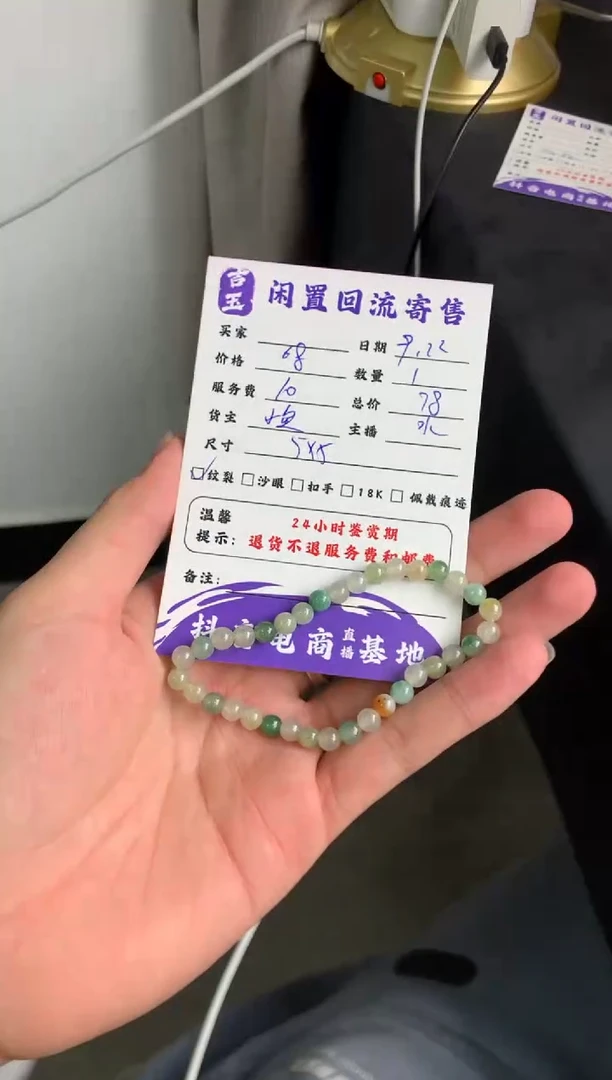 吉玉 闲置回流寄售
买家 日期 9.22
价格 68 数量 1
服务费 10 总价 78
货主 主播
尺寸
纹裂 沙眼 扣手 18K 佩戴痕迹
温馨提示: 24小时鉴赏期
退货不退服务费和邮费
备注:
抖音电商直播基地